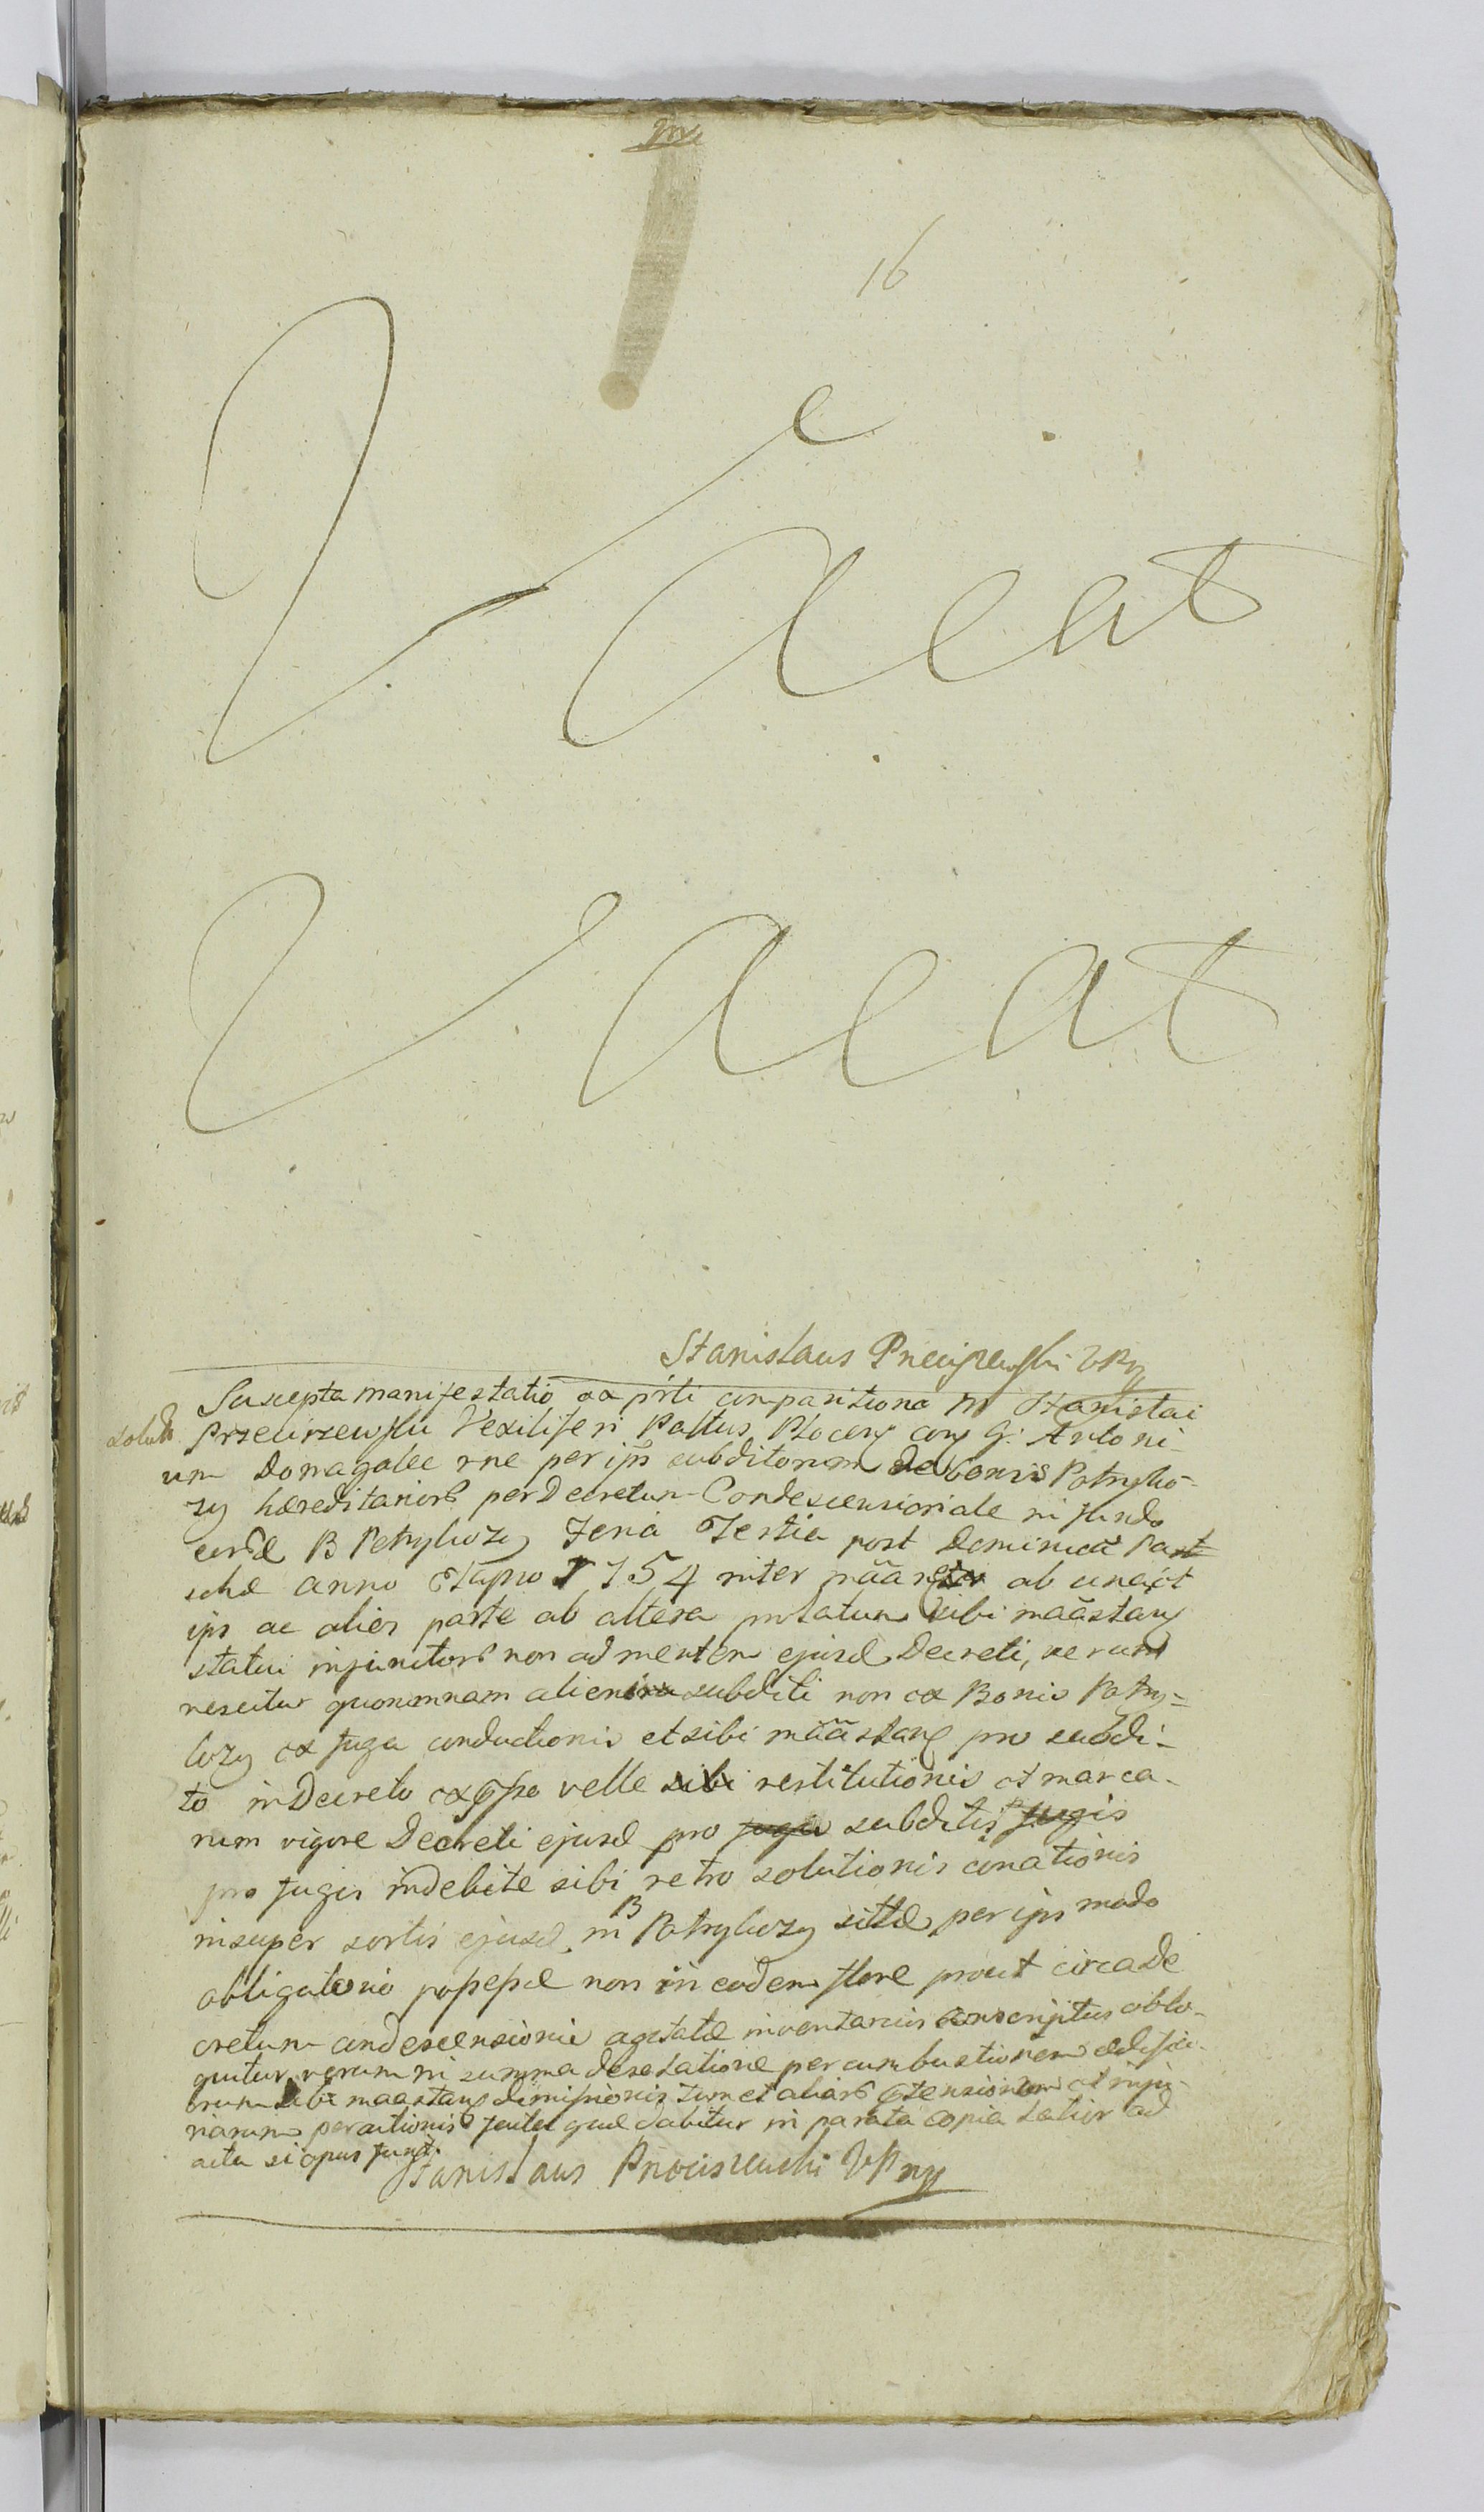 16
Vacat
Vacat
Stanislaus Preciszewski VPP
Suscepta manifestatio ex prti comparitione M Stanislai
solut Przeciszewski Vexiliferi Pałtus Plocens con G: Antoni-
um Domagalec rne per ips subditorum de bonis Potryko-
zy hæreditariorb per Decretum Condescensionale in fundo
eord B Petrykozy Feria Tertia post Dominicā Past
schæ anno Elapso 1754 inter māānt ab una et
ips ac alier parte ab altera prolatum sibi māāstans
statui injunctorb non ad mentem ejusd Decreti, verum
nescitur quorumnam alienorum subditi non ex Bonis Petry=
kozy ex fuga conductionis et sibi māāstans pro subdi-
to in Decreto exopso velle sibi restitutionis et marca-
rum vigore Decreti ejusd pro fuga subditis fugis
pro fugis indebite sibi retro solutionis conationis
insuper sortis ejusd in B Petrykozy sittæ per ips modo
obligatorio possessæ non in eodem flore prout circa de
cretum condescensionis actitatæ inventariis conscriptus oblo-
quitur verum in summa desolatione per combustionem ædificio-
rum sibi maastans dimissionis tum et aliarb ptensionum et inju-
riarum peractionis fattes quæ dabitur in parata copia Latior ad
acta si opus fuerit.
Stanislaus Preciszewski VPP